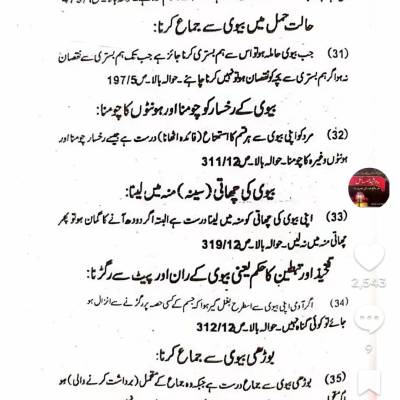 حالت حمل میں بیوی سے جماع کرنا:
(31) جب بیوی حاملہ ہو تو اس سے ہم بستری کرنا جائز ہے جب تک ہم بستری سے نقصان
نہ ہو اگر ہم بستری سے بچہ کو نقصان ہو تو نہیں کرنا چاہئے۔ حوالہ بالا۔ ص 197/5
بیوی کے رخسار کو چومنا اور ہونٹوں کا چومنا:
(32) مرد کو اپنی بیوی سے ہر قسم کا استمتاع (فائدہ اٹھانا) درست ہے جیسے رخسار چومنا اور
ہونٹوں وغیرہ کا چومنا۔ حوالہ بالا۔ ص 311/12
بیوی کی چھاتی (سینہ) منہ میں لینا:
(33) اپنی بیوی کی چھاتی کو منہ میں لینا درست ہے البتہ اگر دودھ آنے کا گمان ہو تو پھر
چھاتی منہ میں نہ لیں۔ حوالہ بالا۔ ص 319/12
تفخیذ اور تبطین کا حکم یعنی بیوی کے ران اور پیٹ سے رگڑنا:
(34) اگر آدمی اپنی بیوی سے اسطرح بغل گیر ہوا کہ جسم کے کسی حصہ پر رگڑنے سے انزال ہو
جائے تو کوئی گناہ نہیں۔ حوالہ بالا۔ ص 312/12
بوڑھی بیوی سے جماع کرنا:
(35) بوڑھی بیوی سے جماع درست ہے جبکہ وہ جماع کے متحمل (برداشت کرنے والی) ہو
2,543
9